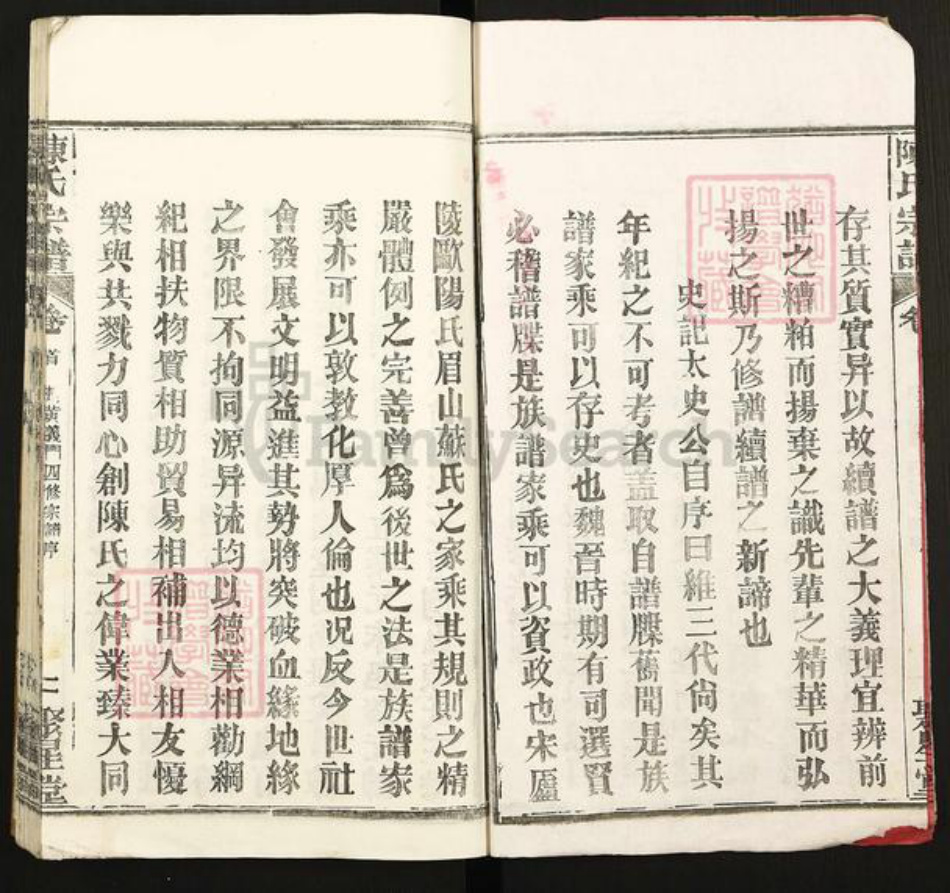 存其質實异以故續譜之大義理宜辨前
世之糟粕而揚棄之識先輩之精華而弘
揚之斯乃修譜續譜之新諦也
史記太史公自序曰維三代尙矣其
年紀之不可考者蓋取自譜牒舊聞是族
譜家乘可以存史也魏晉時期有司選賢
必稽譜牒是族譜家乘可以資政也宋廬
陳氏宗譜 卷
陵歐陽氏眉山蘇氏之家乘其規則之精
嚴體例之完善曾爲後世之法是族譜家
乘亦可以敦教化厚人倫也况反今世社
會發展文明益進其勢將突破血緣地緣
之界限不拘同源异流均以德業相勸綱
紀相扶物質相助貿易相補出人相友憂
樂與共戮力同心創陳氏之偉業臻大同
陳氏宗譜 卷首 義門四修宗譜序 二 聚星堂
FamilySearch